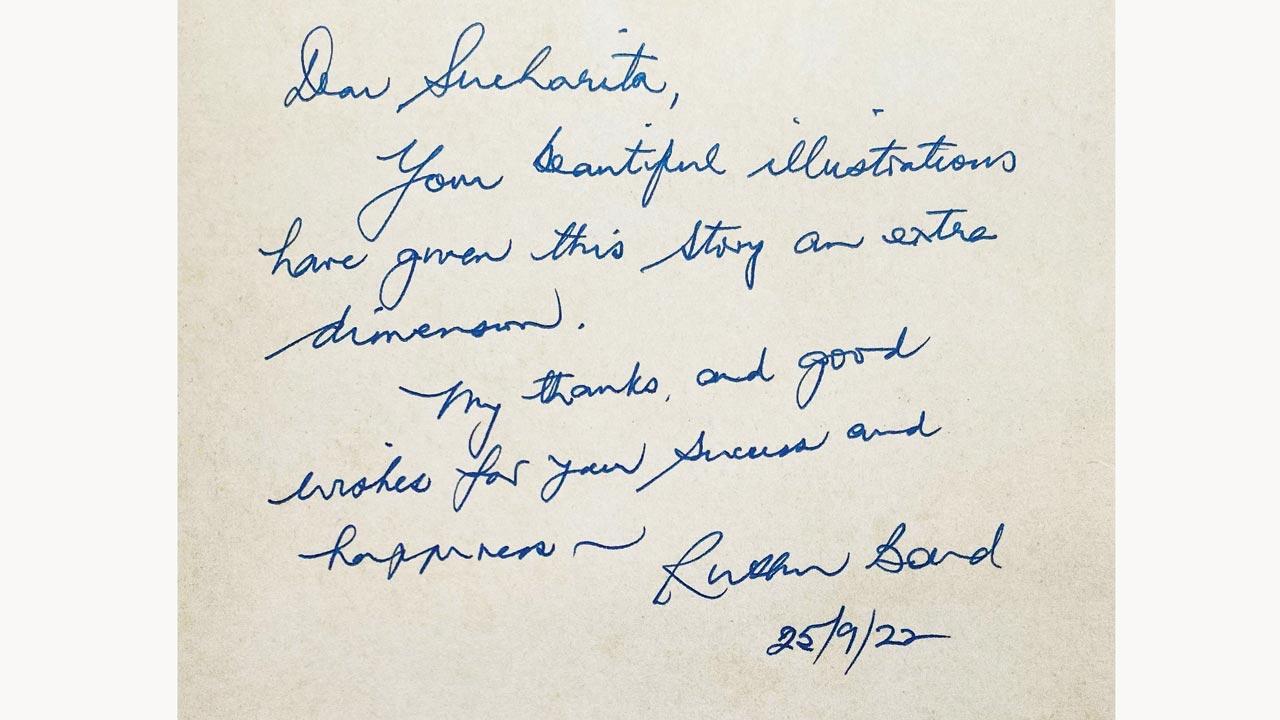 Dear Sucharita,
Your beautiful illustrations
have given this story an extra
dimension.
My thanks, and good
wishes for your success and
happiness ~ Ruskin Bond
25/9/22